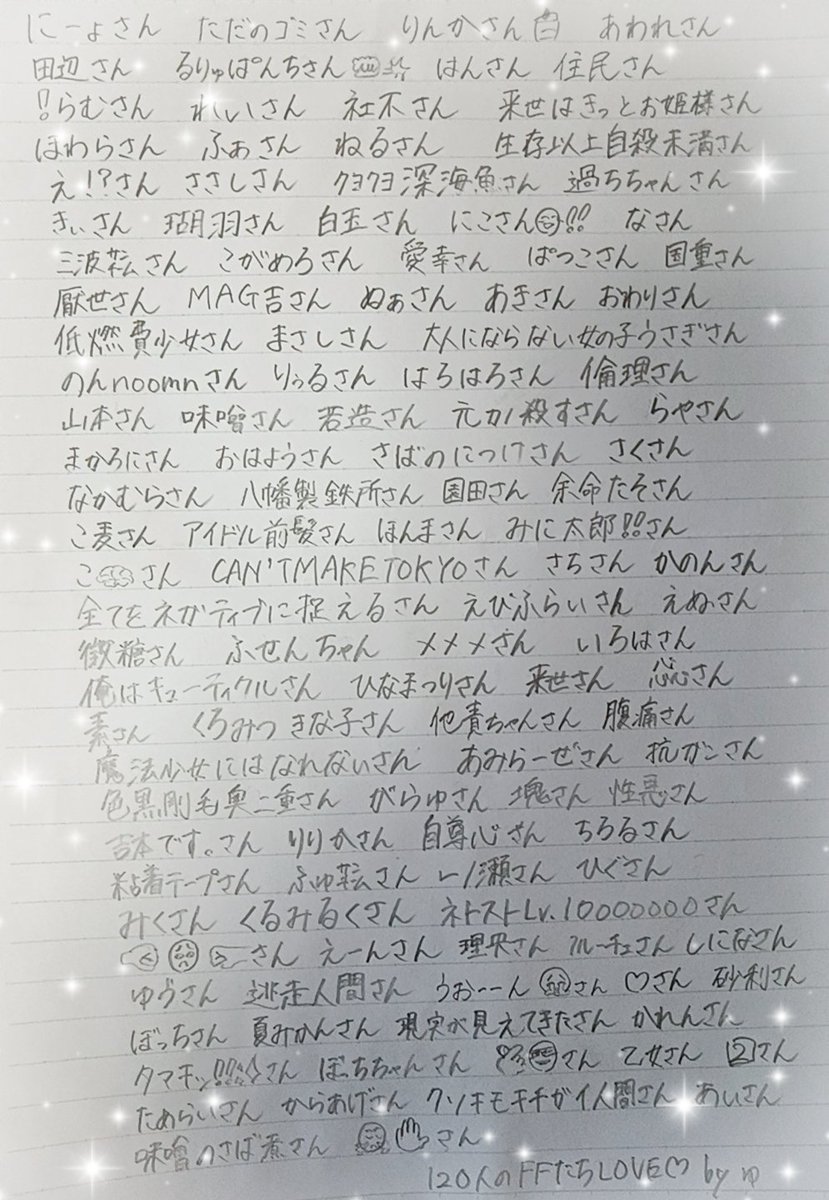 にーよさん ただのゴミさん りんかさん あわれさん
田辺さん るりゅぱんちさん はんさん 住民さん
!らむさん れいさん 社不さん 来世はきっとお姫様さん
ほわらさん ふぁさん ねるさん 生存以上自殺未満さん
え!?さん ささしさん クヨクヨ深海魚さん 過ちちゃんさん
きぃさん 瑚羽さん 白玉さん にこさん!! なさん
三波転さん こがめろさん 愛幸さん ぱつこさん 国重さん
厭世さん MAG吉さん ぬぁさん あきさん おわりさん
低燃費少女さん まさしさん 大人にならない女の子うさぎさん
のんnoomnさん りぅるさん はろはろさん 倫理さん
山本さん 味噌さん 若造さん 元カノ殺すさん らやさん
まかろにさん おはようさん さばのにつけさん さくさん
なかむらさん 八幡製鉄所さん 園田さん 余命たそさん
こ麦さん アイドル前髪さん ほんまさん みに太郎!!さん
こさん CAN'TMAKETOKYOさん さちさん かのんさん
全てをネガティブに捉えるさん えびふらいさん えぬさん
微糖さん ふせんちゃん メメメさん いろはさん
俺はキューティクルさん ひなまつりさん 来世さん さん
素さん くろみつきな子さん 他責ちゃんさん 腹痛さん
魔法少女にはなれないさん あみらーぜさん 抗ガンさん
色黒剛毛奥二重さん がらゆさん 塊さん 性悪さん
吉本です。さん りりかさん 自尊心さん ちろるさん
粘着テープさん ふゅ転さん 一ノ瀬さん ひぐさん
みくさん くるみるくさん ネトストLv.10000000さん
さん えーんさん 理央さん フルーチェさん しになさん
ゆうさん 逃走人間さん うおーーん さん ♡さん 砂利さん
ぼっちさん 夏みかんさん 現実が見えてきたさん かれんさん
タマキン!!さん ぼっちちゃんさん さん 乙女さん 2さん
ためらいさん からあげさん クソキモキチガイ人間さん あぃさん
味噌のさば煮さん さん
120人のFFたちLOVE♡ by ゆ